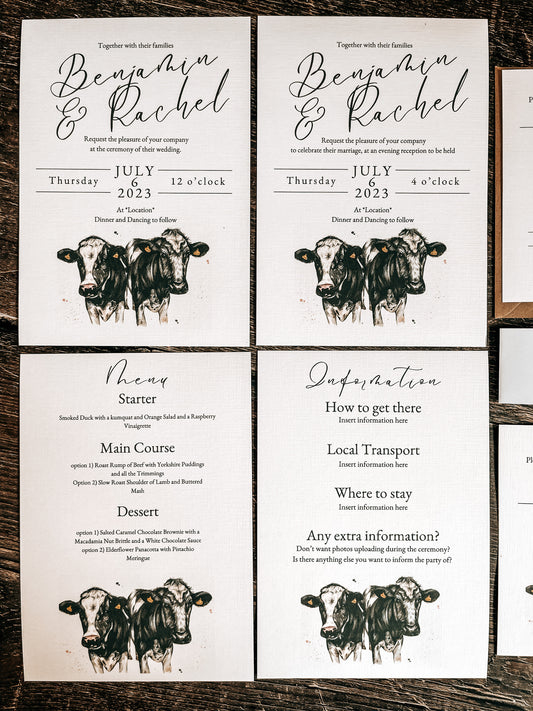 Together with their families
Benjamin
& Rachel
Request the pleasure of your company
at the ceremony of their wedding,
JULY
Thursday 6 12 o'clock
2023
At *Location*
Dinner and Dancing to follow
Together with their families
Benjamin
& Rachel
Request the pleasure of your company
to celebrate their marriage, at an evening reception to be held
JULY
Thursday 6 4 o'clock
2023
At *Location*
Dinner and Dancing to follow
Menu
Starter
Smoked Duck with a kumquat and Orange Salad and a Raspberry
Vinaigrette
Main Course
option 1) Roast Rump of Beef with Yorkshire Puddings
and all the Trimmings
Option 2) Slow Roast Shoulder of Lamb and Buttered
Mash
Dessert
option 1) Salted Caramel Chocolate Brownie with a
Macadamia Nut Brittle and a White Chocolate Sauce
option 2) Elderflower Panacosta with Pistachio
Meringue
Information
How to get there
Insert information here
Local Transport
Insert information here
Where to stay
Insert information here
Any extra information?
Don't want photos uploading during the ceremony?
Is there anything else you want to inform the party of?